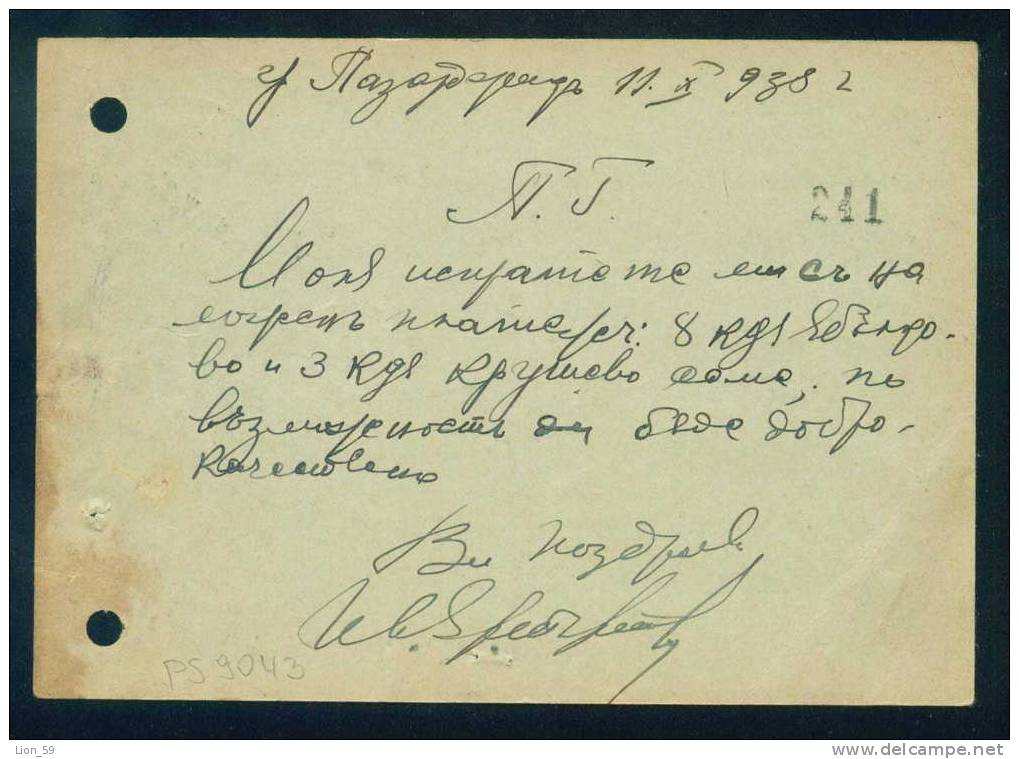 гр Пазарджикъ 11. X 938 г
П. Г.
241
Моля изпратете ми съ на
ложенъ платежъ: 8 кгр ябълко-
во и 3 кгр крушево семе, по
възможность да бѫде добро-
качествено
Ви поздрав.
Ив.
PS 9043
Lion_59
www.delcampe.net